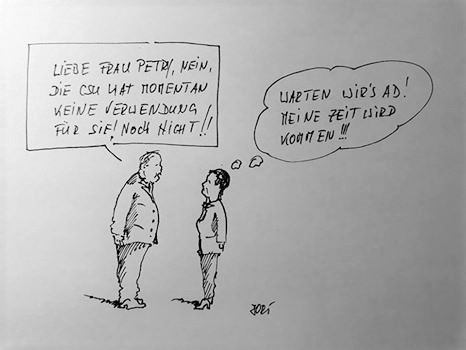 LIEBE FRAU PETRY, NEIN,
DIE CSU HAT MOMENTAN
KEINE VERWENDUNG
FÜR SIE! NOCH NICHT!!
WARTEN WIR'S AB!
MEINE ZEIT WIRD
KOMMEN!!!